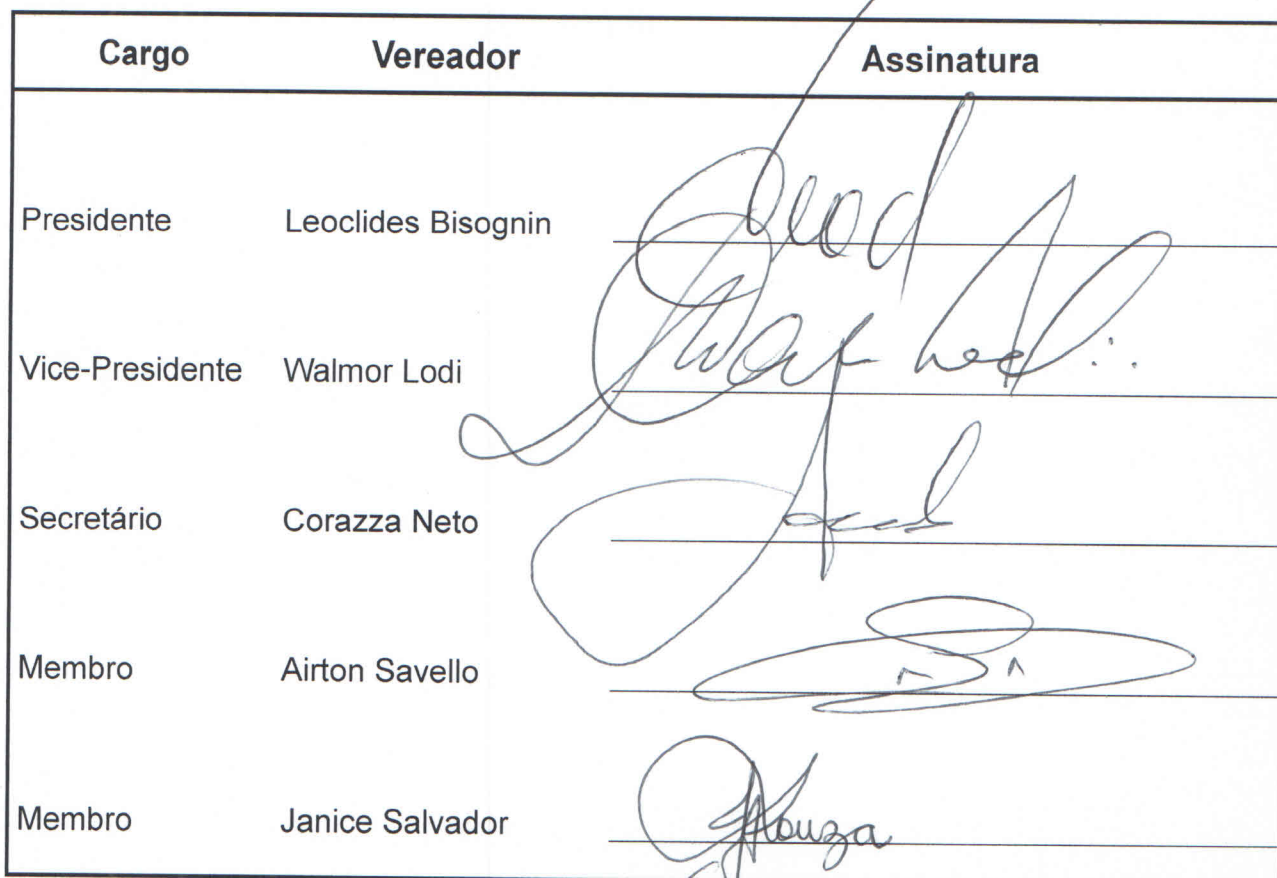 Cargo Vereador Assinatura
Presidente Leoclides Bisognin
Vice-Presidente Walmor Lodi
Secretário Corazza Neto
Membro Airton Savello
Membro Janice Salvador